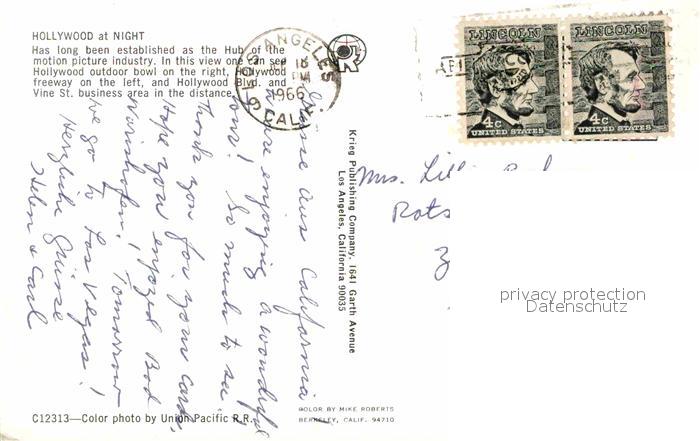 HOLLYWOOD at NIGHT
Has long been established as the Hub of the
motion picture industry. In this view one can see
Hollywood outdoor bowl on the right, Hollywood
freeway on the left, and Hollywood Blvd. and
Vine St. business area in the distance.
LOS ANGELES
CALIF.
1966
LINCOLN
4c
UNITED STATES
LINCOLN
4c
UNITED STATES
Grüsse aus California
are enjoying a wonderful
tour! So much to see!
Thank you for your cards,
Hope you enjoyed Bad
Tomorrow
we go to Las Vegas!
Herzliche Grüsse
Helen & Carl
Krieg Publishing Company, 1641 Garth Avenue
Los Angeles, California 90035
Mrs.
privacy protection
Datenschutz
C12313—Color photo by Union Pacific R.R.
COLOR BY MIKE ROBERTS
BERKELEY, CALIF. 94710